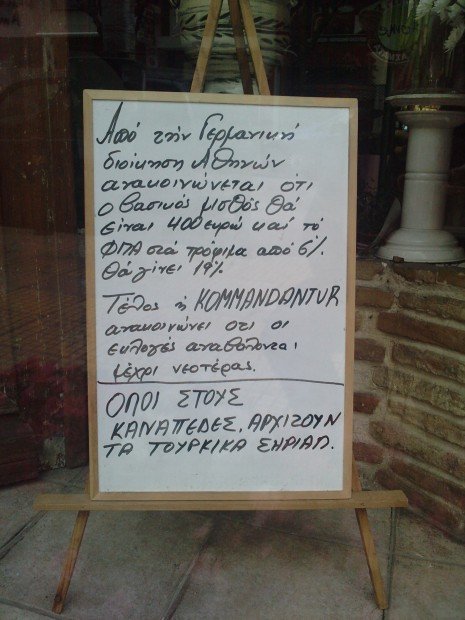 Από τήν Γερμανική
διοίκηση Αθηνών
ανακοινώνεται ότι
ο βασικός μισθός θά
είναι 400 ευρώ καί τό
ΦΠΑ στά τρόφιμα από 6%
θά γίνει 19%
Τέλος η KOMMANDANTUR
ανακοινώνει οτι οι
εκλογές αναβάλονται
μέχρι νεοτέρας.
ΟΛΟΙ ΣΤΟΥΣ
ΚΑΝΑΠΕΔΕΣ, ΑΡΧΙΖΟΥΝ
ΤΑ ΤΟΥΡΚΙΚΑ ΣΗΡΙΑΛ.